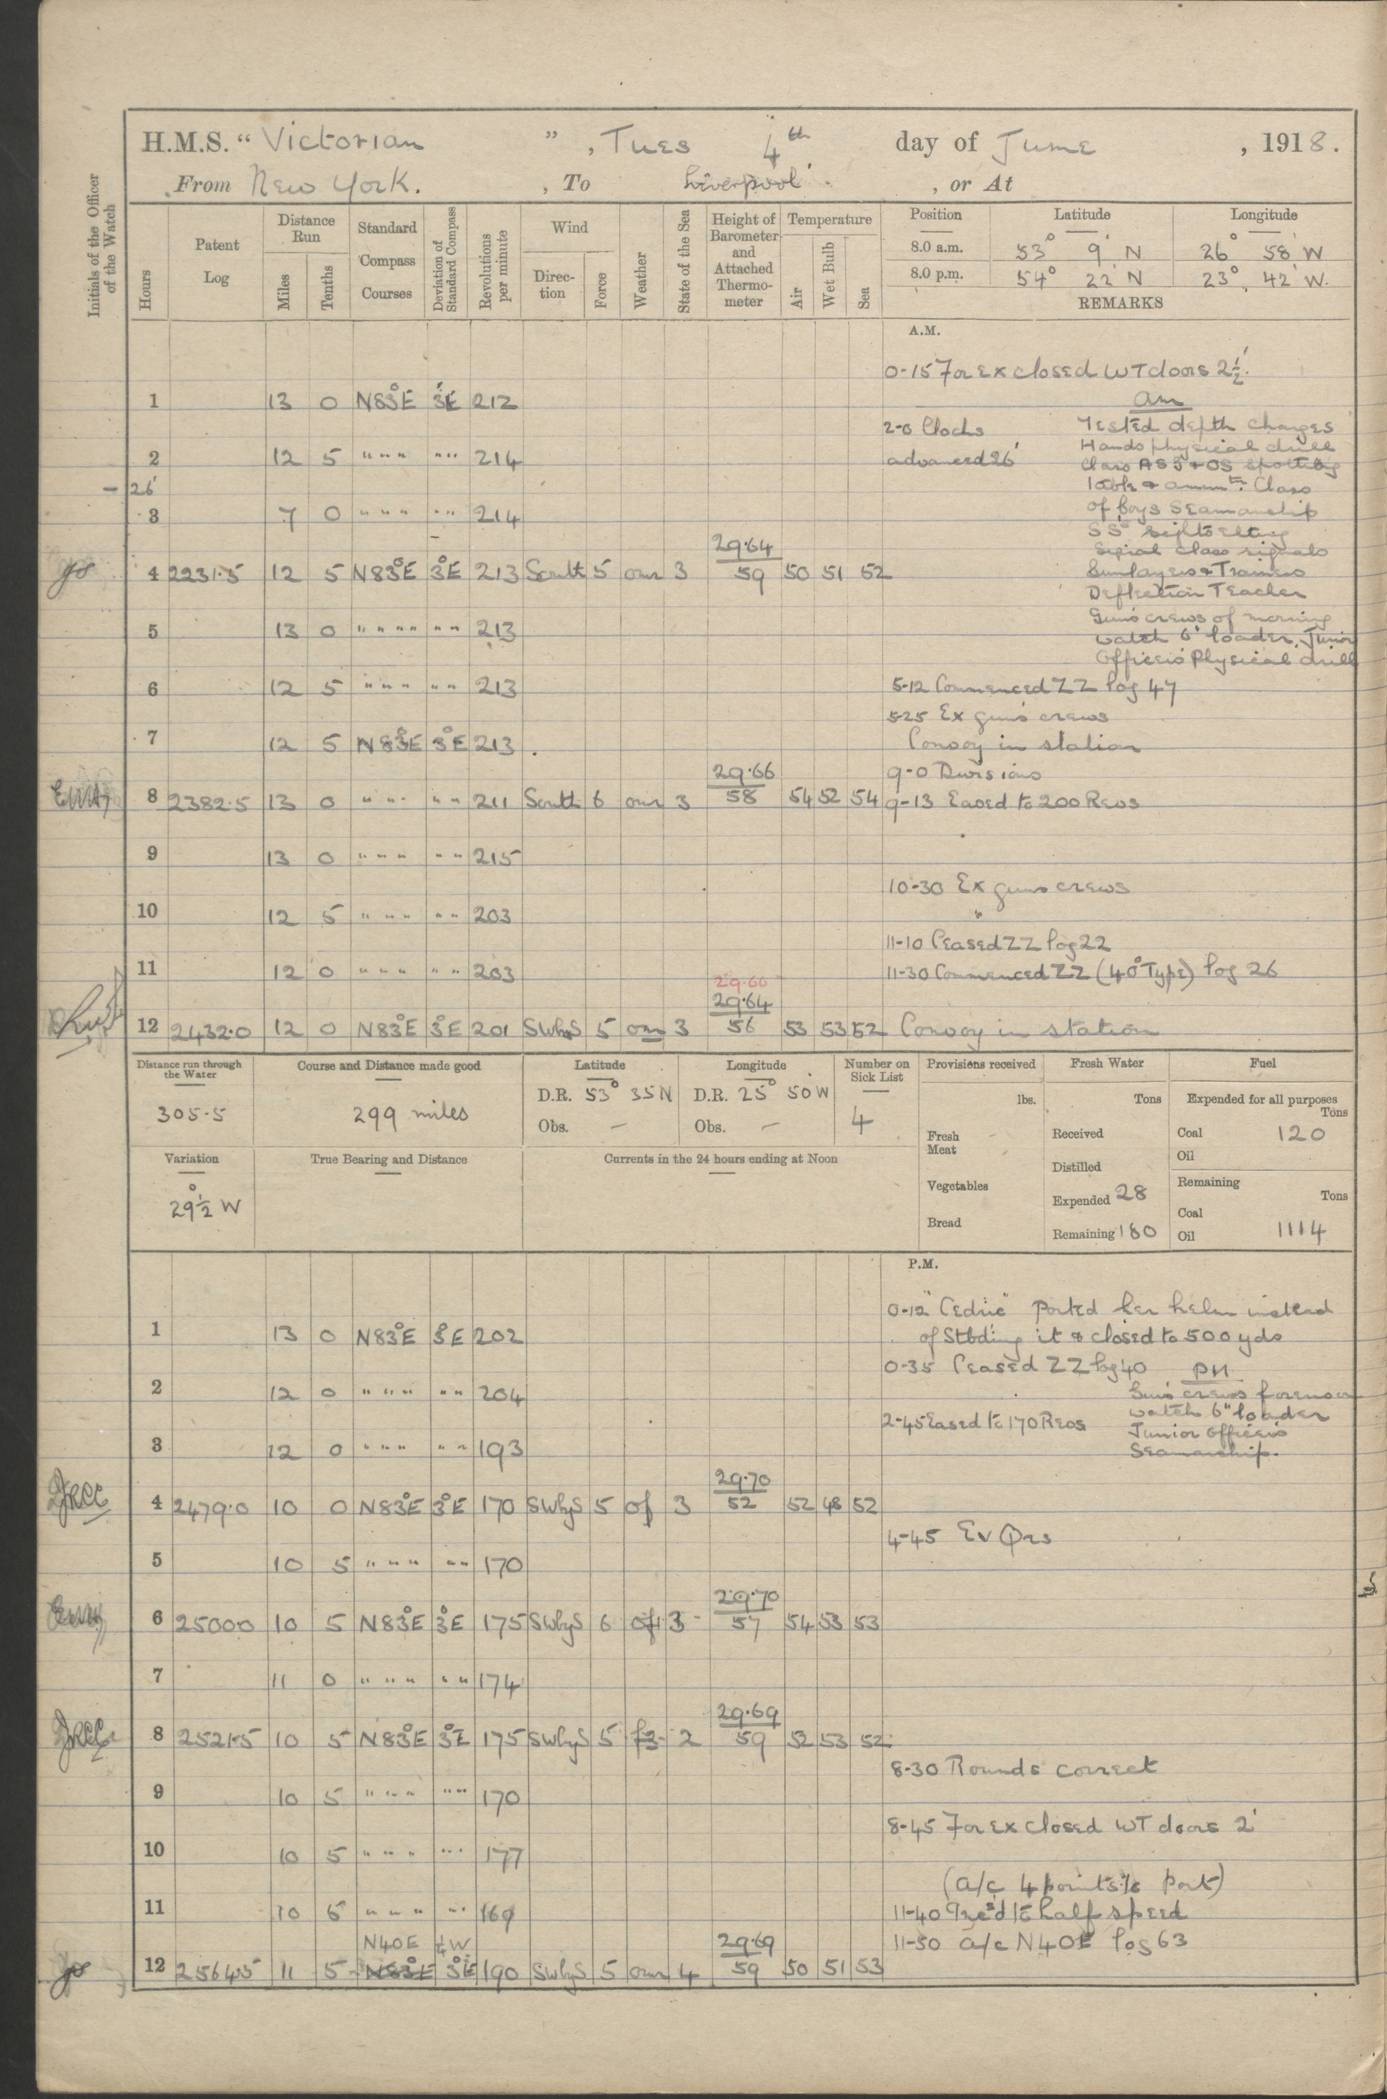 H.M.S. “ Victorian ”, Tues 4th day of June , 1918.
From New York. , To Liverpool. , or At
Initials of the Officer of the Watch
Hours
Patent Log
Distance Run
Miles
Tenths
Standard Compass Courses
Deviation of Standard Compass
Revolutions per minute
Wind
Direction
Force
Weather
State of the Sea
Height of Barometer and Attached Thermometer
Temperature
Air
Wet Bulb
Sea
Position Latitude Longitude
8.0 a.m. 53° 9' N 26° 58' W
8.0 p.m. 54° 22' N 23° 42' W.
REMARKS
A.M.
0-15 For Ex closed WT doors 2½'.
1 13 0 N83°E 3°E 212
am
2-0 Clocks
advanced 26'
Tested depth charges
Hands physical drill
Class ASS & OS spotting
table & ammtn. Class
of boys Seamanship
SS
class signals
Gunlayers & Trainers
Deflection Teacher
Guns crews of morning
watch 6" loader. Junior
Officers Physical drill
2 12 5 " " " " " 214
- 26'
3 7 0 " " " " " 214
4 2231.5 12 5 N83°E 3°E 213 South 5 omr 3 29.64 59 50 51 52
5 13 0 " " " " " " 213
6 12 5 " " " " " 213
5-12 Commenced ZZ log 47
5-25 Ex guns crews
7 12 5 N83°E 3°E 213
Convoy in station
9-0 Divisions
8 2382.5 13 0 " " " " 211 South 6 omr 3 29.66 58 54 52 54
9-13 Eased to 200 Revs
9 13 0 " " " " " 215
10-30 Ex guns crews
10 12 5 " " " " " 203
11-10 Ceased ZZ log 22
11 12 0 " " " " " 203
11-30 Commenced ZZ (40° Type) log 26
29.60
12 2432.0 12 0 N83°E 3°E 201 SWbS 5 om 3 29.64 56 53 53 52
Convoy in station
Distance run through the Water 305.5
Course and Distance made good 299 miles
Latitude D.R. 53° 35 N Obs. —
Longitude D.R. 25° 50 W Obs. —
Number on Sick List 4
Variation 29½° W
True Bearing and Distance
Currents in the 24 hours ending at Noon
Provisions received
lbs.
Fresh Meat
Vegetables
Bread
Fresh Water
Tons
Received
Distilled
Expended 28
Remaining 180
Fuel
Expended for all purposes
Tons
Coal 120
Oil
Remaining
Tons
Coal
Oil 1114
P.M.
0-12 "Cedric" ported her helm instead
of Stbding it & closed to 500 yds
1 13 0 N83°E 3°E 202
0-35 Ceased ZZ log 40
PM
Guns crews forenoon
watch 6" loader
Junior Officers
Seamanship.
2 12 0 " " " " " 204
2-45 Eased to 170 Revs
3 12 0 " " " " " 193
4 2479.0 10 0 N83°E 3°E 170 SWbyS 5 of 3 29.70 52 52 48 52
4-45 Ev Qrs
5 10 5 " " " " " 170
6 2500.0 10 5 N83°E 3°E 175 SWbyS 6 3 29.70 57 54 53 53
7 11 0 " " " " " 174
8 2521.5 10 5 N83°E 3°E 175 SWbyS 5 2 29.69 59 52 53 52
8-30 Rounds correct
9 10 5 " " " " " 170
8-45 For Ex closed WT doors 2'
10 10 5 " " " " " 177
(a/c 4 points to Port)
11 10 " " " " " 169
11-40 to half speed
11-50 a/c N40E log 63
N40E ¼W
12 2564.5 11 5 N83°E 3°E 190 SWbyS 5 omr 4 29.69 59 50 51 53